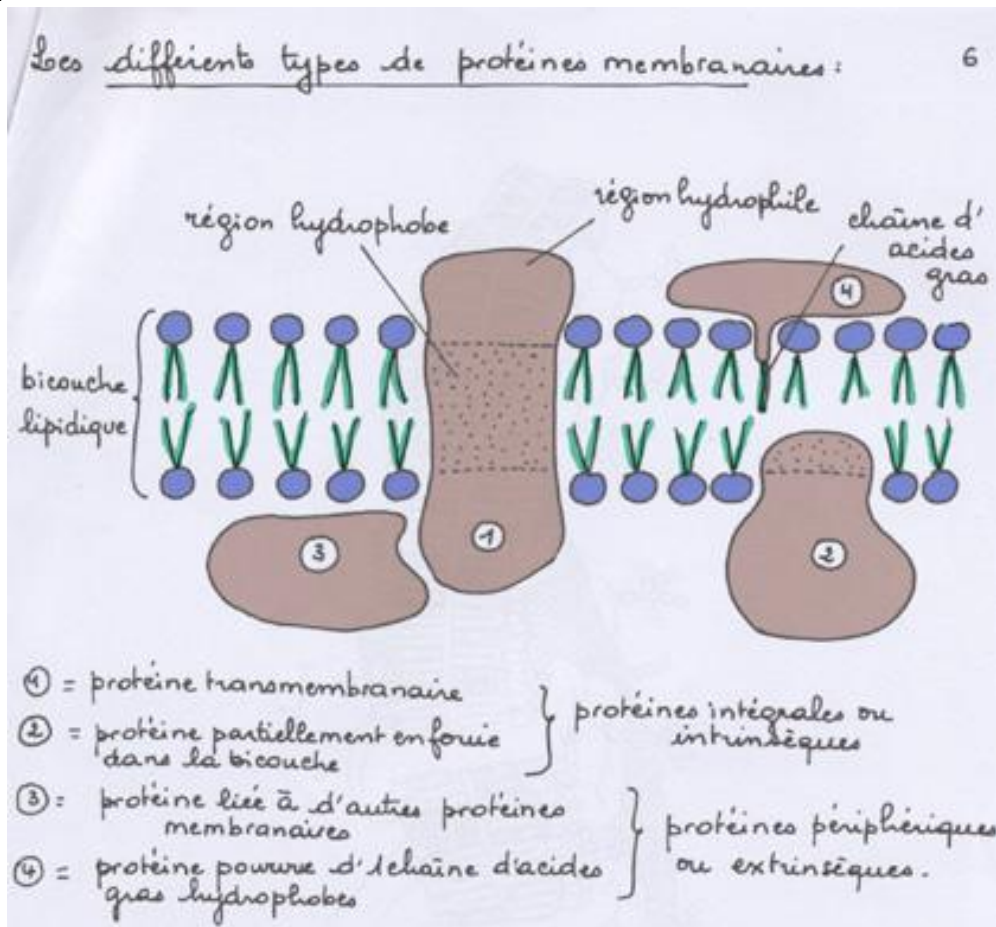 Les différents types de protéines membranaires :
6
région hydrophobe
région hydrophile
chaîne d'
acides
gras
4
bicouche
lipidique
3
1
2
1 = protéine transmembranaire
2 = protéine partiellement enfouie
dans la bicouche
protéines intégrales ou
intrinsèques
3 = protéine liée à d'autres protéines
membranaires
4 = protéine pourvue d'1 chaîne d'acides
gras hydrophobes
protéines périphériques
ou extrinsèques.